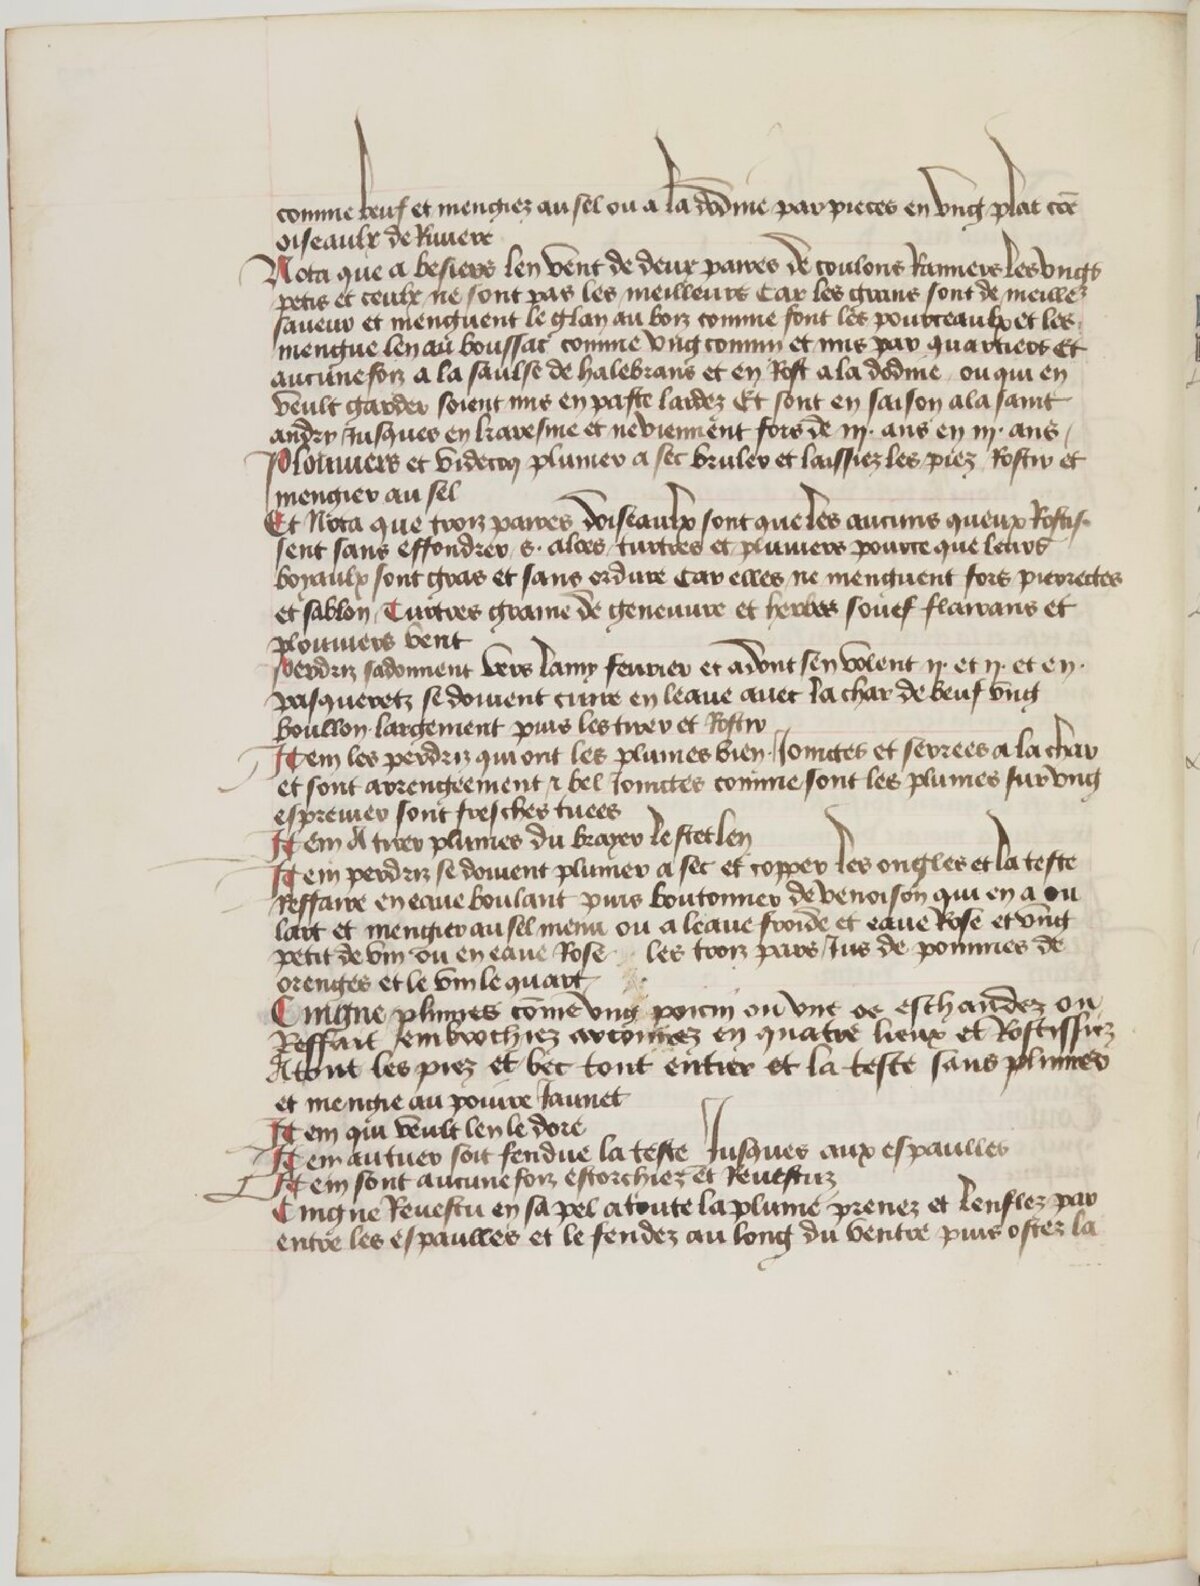 comme beuf et mengiez au sel ou a la dodine par pieces en vng plat cõe
oiseaulx de Riuiere
Nota que a besiers len vent de deux paires de coulons Ramiers les vngs
petis et ceulx ne sont pas les meilleurs Car les grans sont de meille
saueur et menguent le glan au boiz comme font les pourceaulx et les
mengue len au boussac comme vng connin et mis par quartiers Et
aucuneffoiz a la saulse de halebrans et en Rost a la dodine ou qui en
veult garder soient mis en paste lardez Et sont en saison a la saint
andry Jusques en karesme et ne viennent fors de iij. ans en iij. ans
Plouuiers et videcoq plumer a sec bruler et laissiez les piez Rostir et
mengier au sel
Et Nota que troiz paires doiseaulx sont que les aucuns queux Rostis-
sent sans effondrer s. aloes turtres et pluuiers pource que leurs
boyaulx sont gras et sans ordure Car elles ne menguent fors pierrectes
et sablon Turtres graine de geneuure et herbes souef flairans et
plouuiers vent
Perdriz sadonnent vers lamy feurier et adont sen volent ij. et ij. et en
pasqueretz se doiuent cuire en leaue auec la char de beuf vng
boullon largement puis les tirer et Rostir
Item les perdriz qui ont les plumes bien Joinctes et serrees a la char
et sont arrengeement & bel Joinctes comme sont les plumes sur vng
espreuier sont fresches tuees
Item A tirer plumes du brayer le scet len
Item perdriz se doiuent plumer a sec et copper les ongles et la teste
Reffaire en eaue boulant puis boutonner de venoison qui en a ou
lart et mengier au sel menu ou a leaue froide et eaue Rose et vng
petit de vin ou en eaue Rose les troiz pars Jus de pommes de
orenges et le vin le quart
Cuigne plumes cõme vng poucin ou vne oe eschaudez ou
Reffait embrochiez arconnez en quatre lieux et Rostissiez
Atout les piez et bec tout entier et la teste sans plumer
et mengie au poiure Jaunet
Item qui veult len le dore
Item au tuer soit fendue la teste Jusques aux espaulles
Item sont aucuneffoiz escorchiez et Reuestuz
Cuigne Reuestu en sa pel a toute la plume prenez et lenflez par
entre les espaulles et le fendez au long du ventre puis ostez la